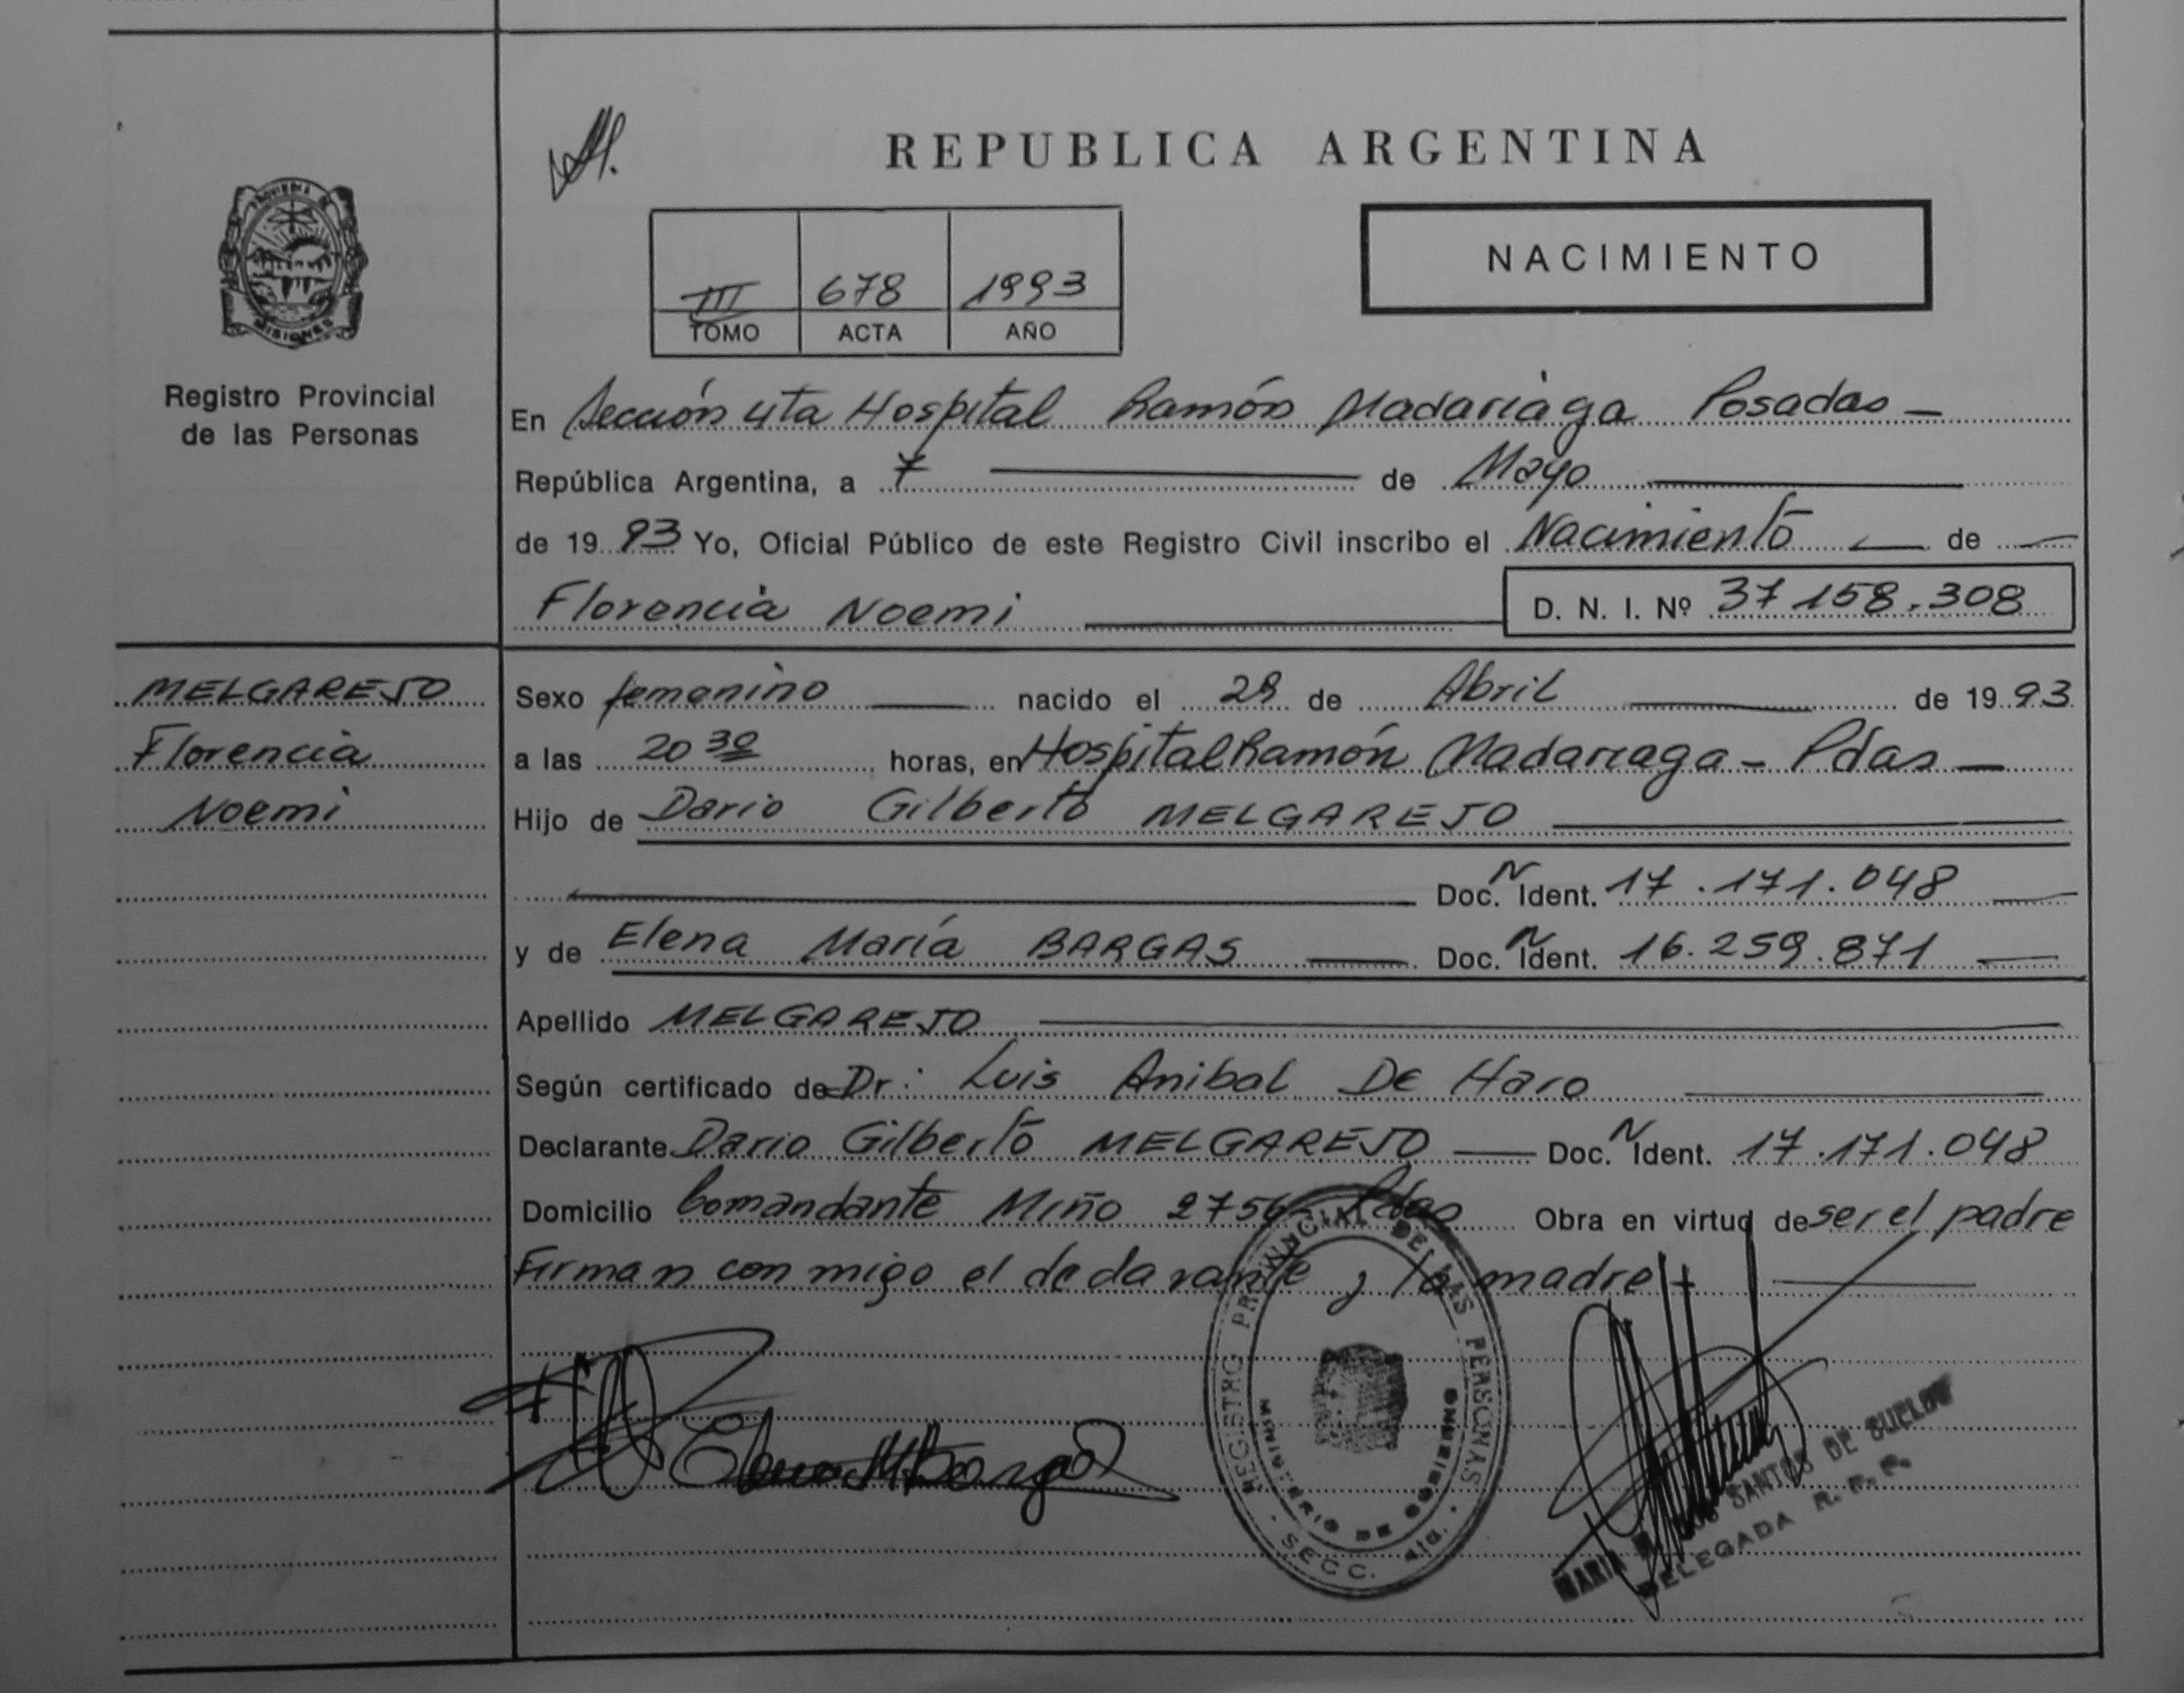 REPUBLICA ARGENTINA
NACIMIENTO
III 678 1993
TOMO ACTA AÑO
PROVINCIA DE
MISIONES
Registro Provincial
de las Personas
En Sección 4ta Hospital Ramón Madariaga Posadas —
República Argentina, a 7 — de Mayo —
de 1993 Yo, Oficial Público de este Registro Civil inscribo el Nacimiento — de —
Florencia Noemi — D. N. I. Nº 37 158.308
MELGAREJO
Florencia
Noemi
Sexo femenino — nacido el 29 de Abril — de 1993
a las 20 30 horas, en Hospital Ramón Madariaga - Pdas —
Hijo de Dario Gilberto MELGAREJO —
— Doc. N Ident. 17.171.048 —
y de Elena María BARGAS — Doc. N Ident. 16.259.871 —
Apellido MELGAREJO —
Según certificado de Dr: Luis Anibal De Haro —
Declarante Dario Gilberto MELGAREJO — Doc. N Ident. 17.171.048
Domicilio Comandante Miño 2756 Pdas Obra en virtud de ser el padre
Firman con migo el declarante y la madre —
Elena M Bargas
REGISTRO PROVINCIAL DE LAS PERSONAS
MINISTERIO DE GOBIERNO
SECC. 4ta.
MARIA SANTOS DE SUELDO
DELEGADA R. P. P.